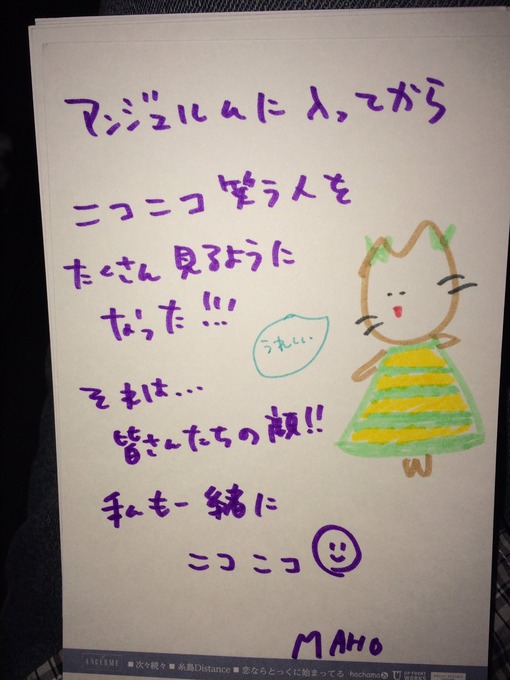 アンジュルムに入ってから
ニコニコ笑う人を
たくさん見るように
なった!!!
うれしい
それは...
皆さんたちの顔!!
私も一緒に
ニコニコ
MAHO
ANGERME ■ 次々続々 ■ 糸島Distance ■ 恋ならとっくに始まってる hachama UP-FRONT WORKS